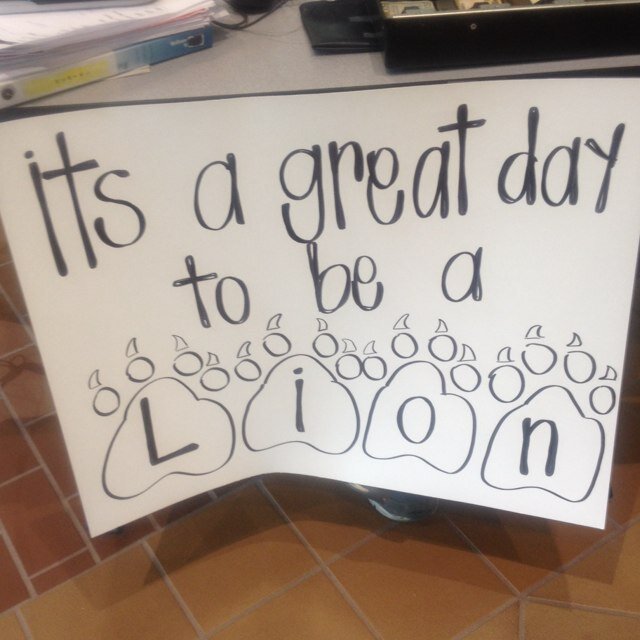 its a great day
to be a
Lion